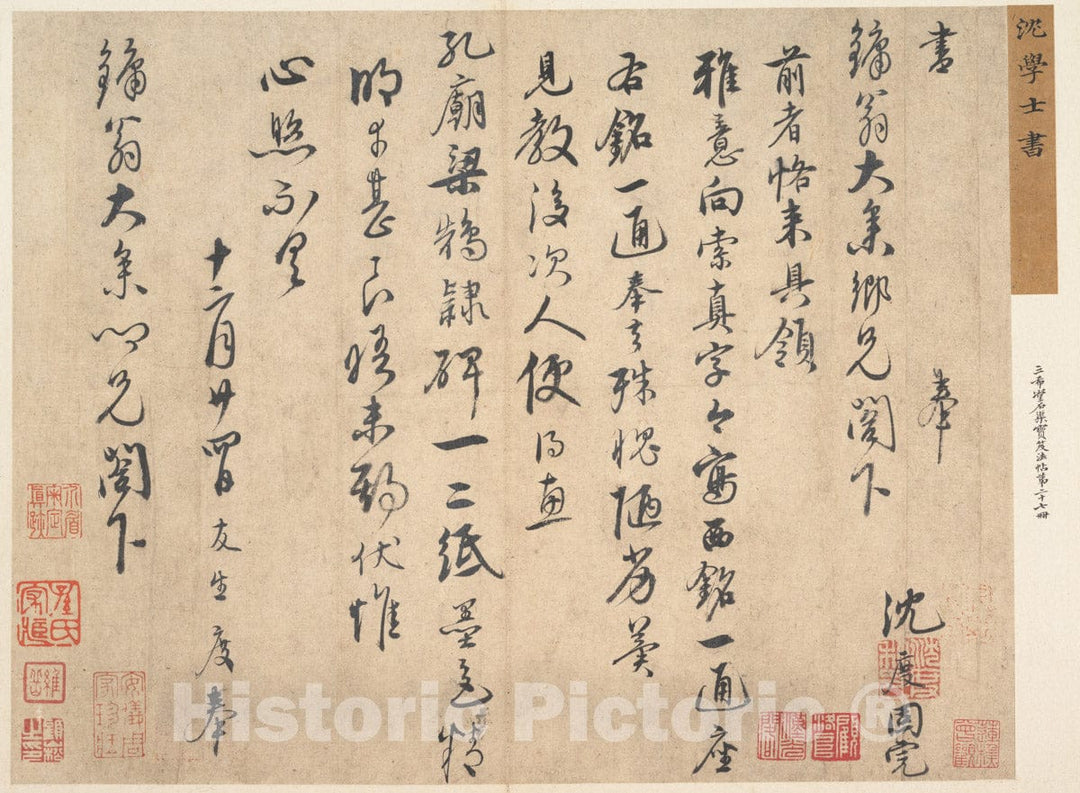 沈學士書
三希堂石渠寶笈法帖第二十七冊
書
奉
鏞翁大參鄉兄閣下
沈度固完
前者恪來具領
雅意向索真字今寫西銘一通座
右銘一通奉去殊愧陋劣冀
見教後次人便得惠
孔廟梁鵠隸碑一二紙墨色精
明者甚良晤未期伏惟
心照不具
十二月廿四日友生度奉
鏞翁大參鄉兄閣下
Historic Pictoric ®